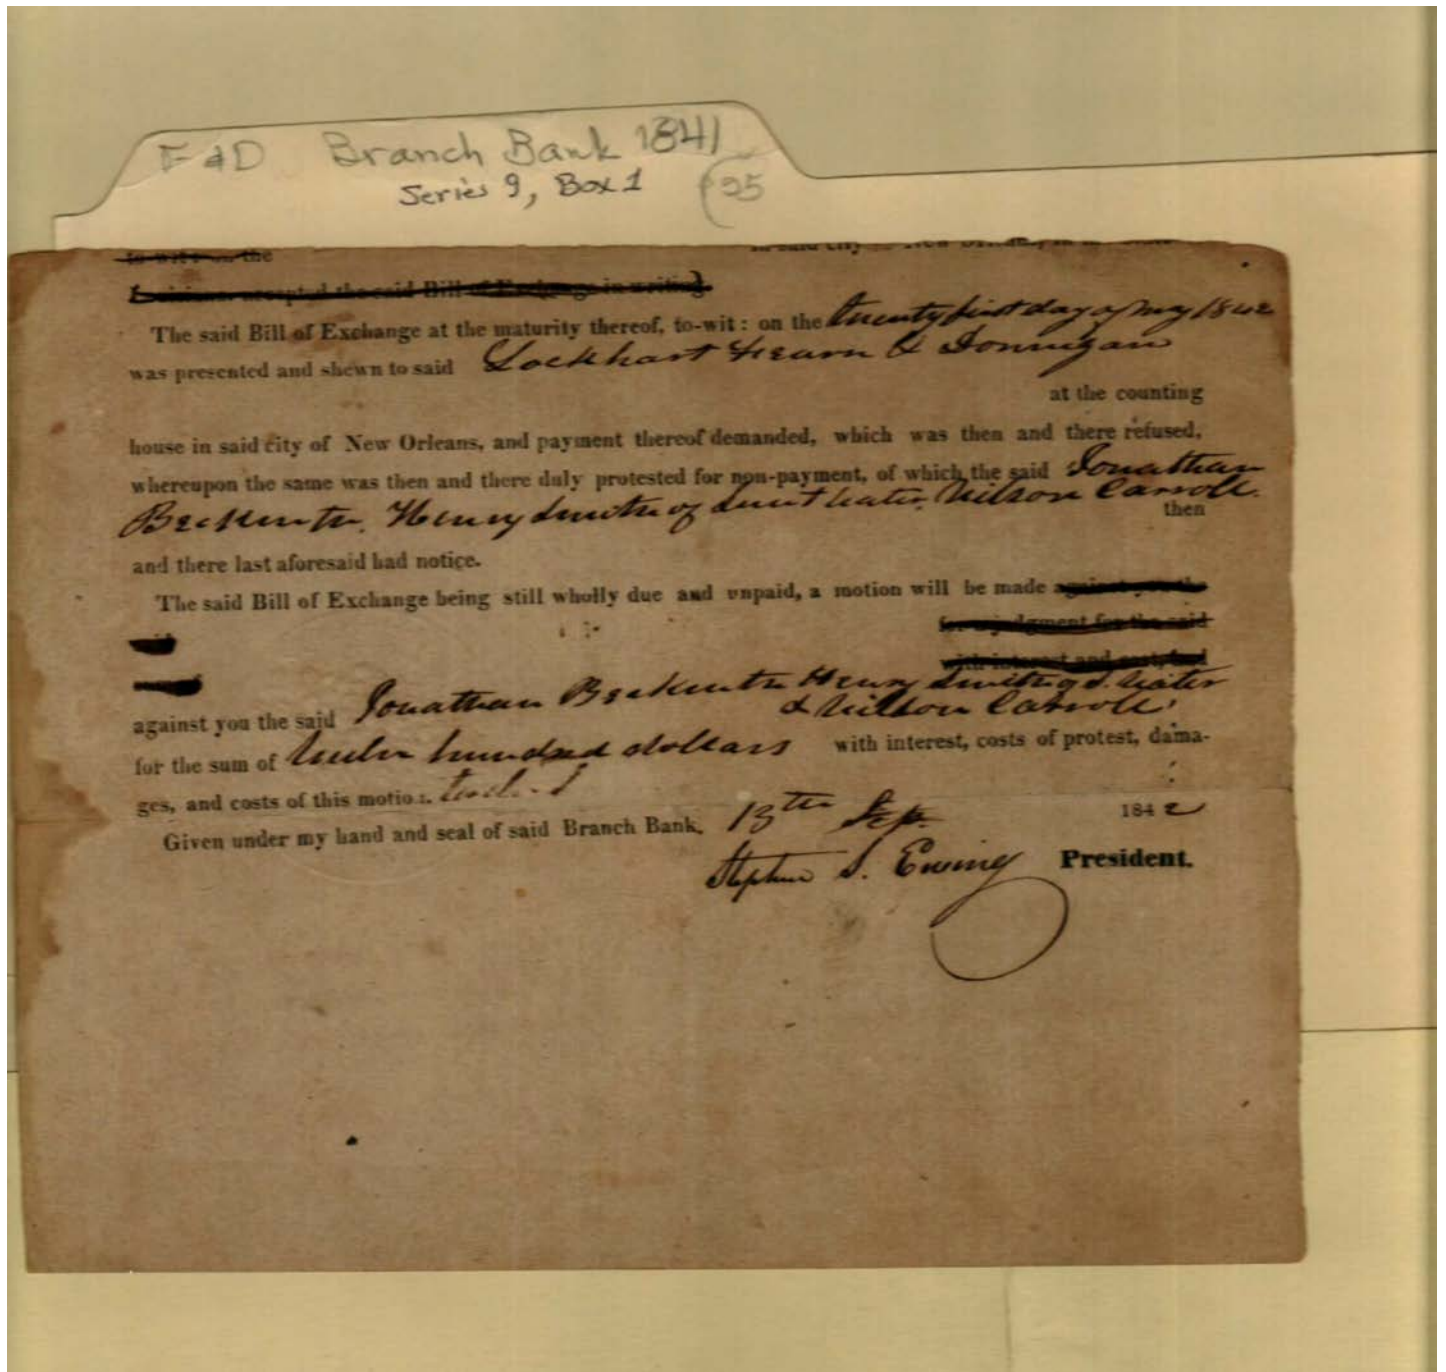 F&D Branch Bank 1841
Series 9, Box 1 (25
to wit: on the in said city New Orleans, in
accepted the said Bill of Exchange in writing
The said Bill of Exchange at the maturity thereof, to-wit: on the twenty first day of May 1842
was presented and shewn to said Lockhart Fearn & Donnigan
at the counting
house in said city of New Orleans, and payment thereof demanded, which was then and there refused,
whereupon the same was then and there duly protested for non-payment, of which the said Jonathan
Beckwith, Henry Smith of Wilson Carroll.
then
and there last aforesaid had notice.
The said Bill of Exchange being still wholly due and unpaid, a motion will be made against you the
said for a judgment for the said
with interest and cost, and
against you the said Jonathan Beckwith Henry Smith of S. Water
& Wilson Carroll
for the sum of twelve hundred dollars with interest, costs of protest, dama-
ges, and costs of this motion.
Given under my hand and seal of said Branch Bank, 13th Sep. 1842
Stephen S. Ewing President.